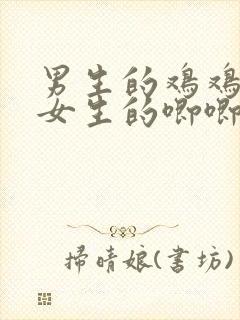 男生的鸡鸡
女生的唧唧
掃晴娘(書坊)